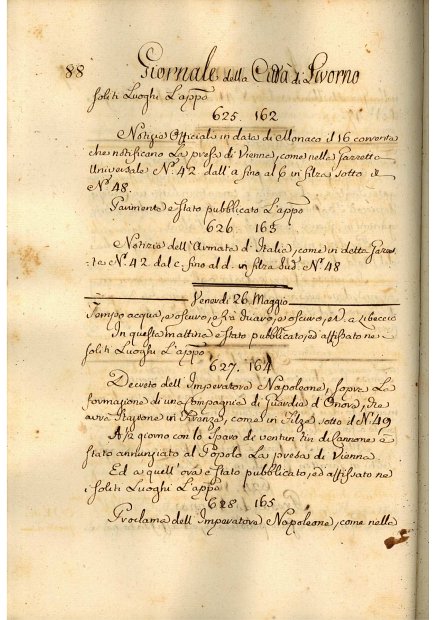 88 Giornale della Città di Livorno
soliti Luoghi L'appō
625. 162
Notizia Officiale in data di Monaco il 16 corrente
che notificano La presa di Vienna, come nella Gazzetta
Universale Nº. 42 dall' a fino al 6 in filza sotto il
Nº. 48.
Parimente è stato pubblicato L'appō
626. 163
Notizie dell'Armata d'Italia, come in detta Gazze-
ta Nº. 42 dal c. fino al d. in filza Sud. Nº. 48
Venerdì 26. Maggio
Tempo acqua, e oscuro, e oscuro, ed a Libeccio
In questa mattina è stato pubblicato, ed affissato ne
soliti Luoghi L'appō
627. 164
Decreto dell'Imperatore Napoleone, sopra La
formazione di una Compagnia di Guardia d'Onore, che
avrà in Firenze, come in Filza sotto il Nº. 49
A ½ giorno con lo sparo di ventun tiri di Cannone è
stato annunziato al Popolo La presa di Vienna.
Ed a quell'ora è stato pubblicato, ed affissato ne
i soliti Luoghi L'appō
628. 165
Proclama dell'Imperatore Napoleone, come nella